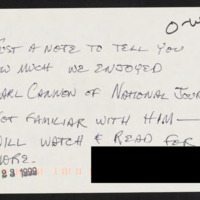 O-W
UST A NOTE TO TELL YOU
OW MUCH WE ENJOYED
ARL CANNON OF NATIONAL JOUR
OT FAMILIAR WITH HIM —
ILL WATCH & READ FOR
ORE.
23 1999